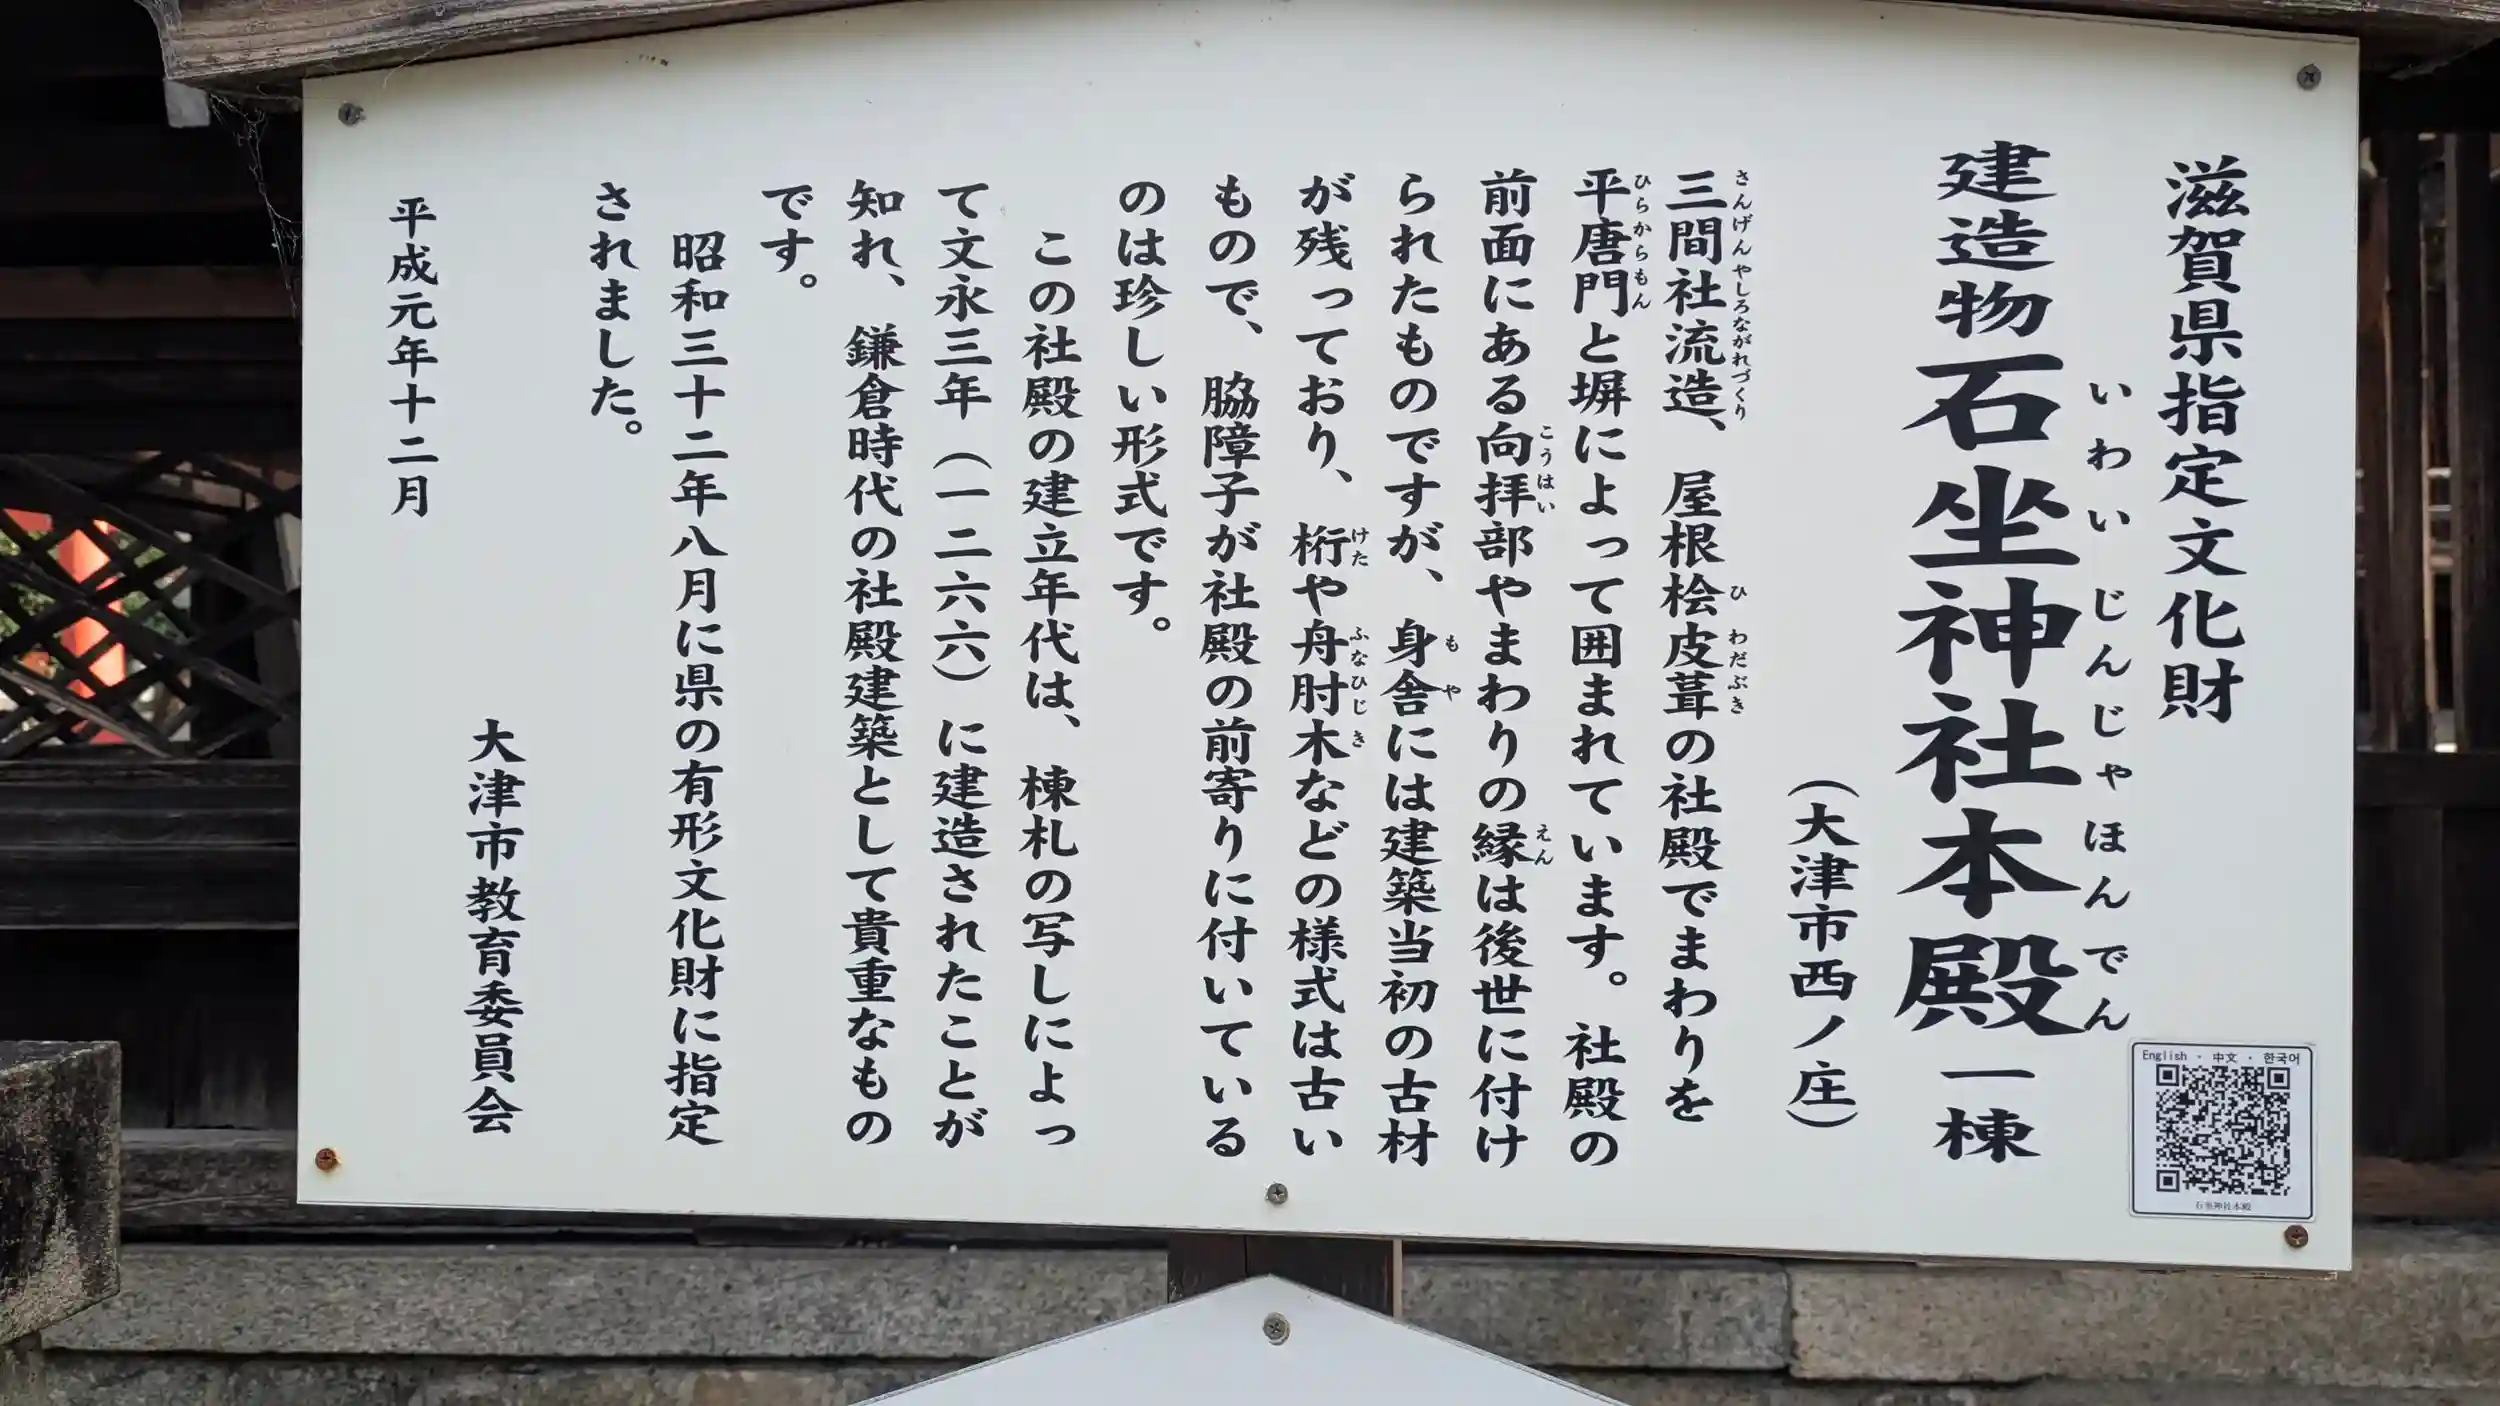 滋賀県指定文化財
建造物石坐神社本殿一棟
いわいじんじゃほんでん
（大津市西ノ庄）
三間社流造、屋根桧皮葺の社殿でまわりを
さんげんやしろながれづくり
ひわだぶき
平唐門と塀によって囲まれています。社殿の
ひらからもん
前面にある向拝部やまわりの縁は後世に付け
こうはい
えん
られたものですが、身舎には建築当初の古材
もや
が残っており、桁や舟肘木などの様式は古い
けた
ふなひじき
もので、脇障子が社殿の前寄りに付いている
のは珍しい形式です。
この社殿の建立年代は、棟札の写しによっ
て文永三年（一二六六）に建造されたことが
知れ、鎌倉時代の社殿建築として貴重なもの
です。
昭和三十二年八月に県の有形文化財に指定
されました。
大津市教育委員会
平成元年十二月
English ・ 中文 ・ 한국어
石坐神社本殿